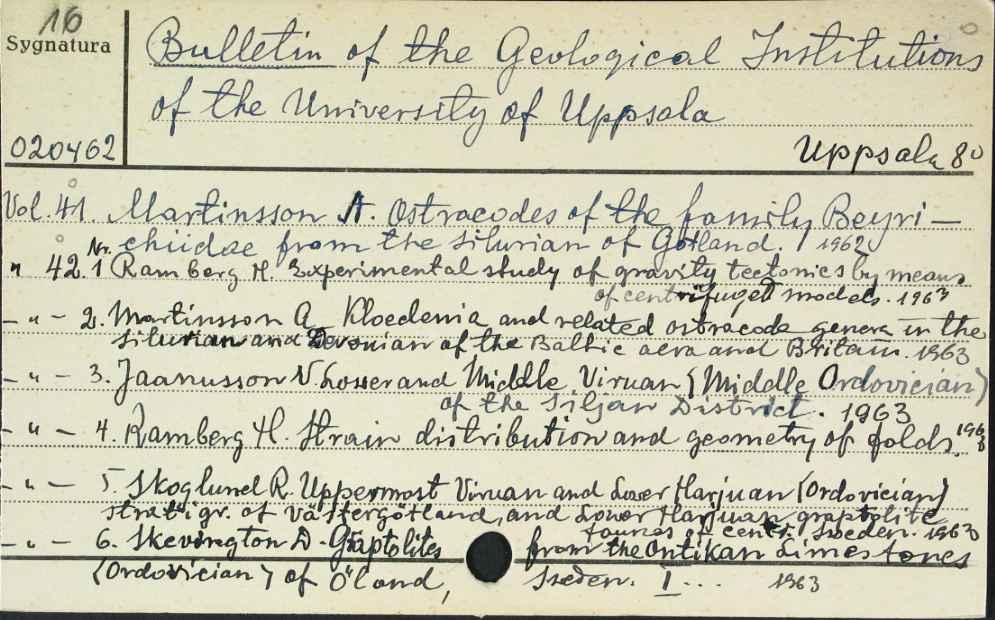 16
Sygnatura
020462
Bulletin of the Geological Institutions
of the University of Uppsala
Uppsala 8°
Vol. 41. Martinsson A. Ostracodes of the family Beyri-
chiidae from the Silurian of Gotland. 1962
" 42. Nr. 1 Ramberg H. Experimental study of gravity tectonics by means
of centrifuged models. 1963
- " - 2. Martinsson A. Kloedenia and related ostracode genera in the
Silurian and Devonian of the Baltic aera and Britain. 1963
- " - 3. Jaanusson V. Lower and Middle Viruan (Middle Ordovician)
of the Siljan District. 1963
- " - 4. Ramberg H. Strain distribution and geometry of folds. 1963
- " - 5. Skoglund R. Uppermost Viruan and Lower Harjuan (Ordovician)
stratigr. of Västergötland, and Lower Harjuan graptolite
faunas of centr. Sweden. 1963
- " - 6. Skevington D. Graptolites from the Ontikan Limestones
(Ordovician) of Öland, Sweden. I... 1963